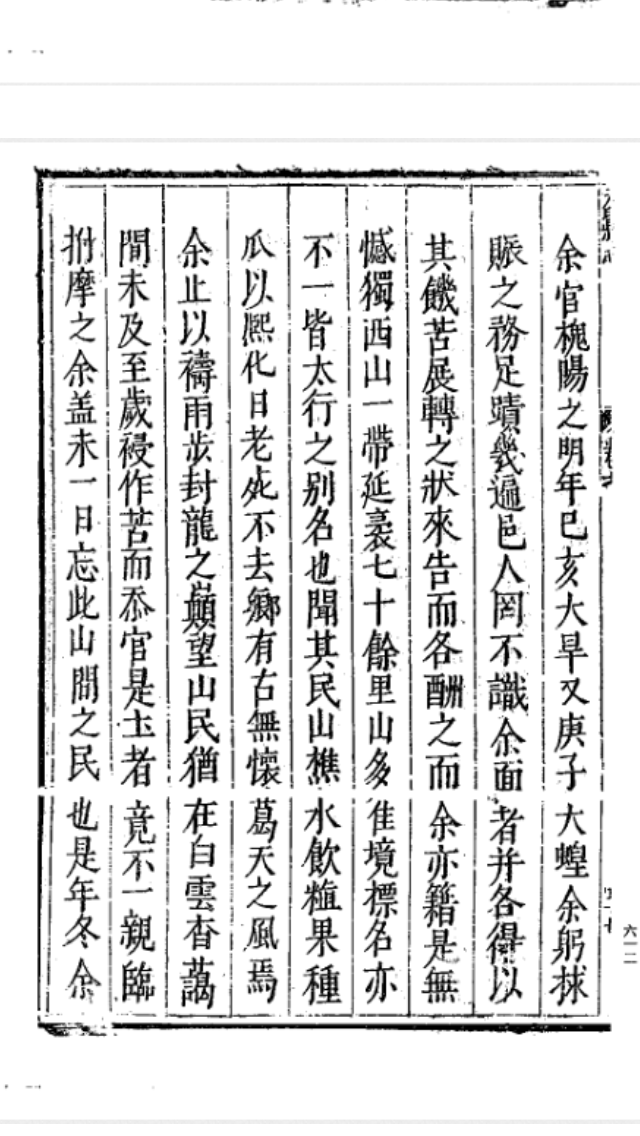 余官槐陽之明年己亥大旱又庚子大蝗余躬捄
賑之務足蹟幾遍邑人罔不識余面者并各得以
其饑苦展轉之狀來告而各酬之而余亦籍是無
憾獨西山一帶延袤七十餘里山多隹境標名亦
不一皆太行之别名也聞其民山樵水飲植果種
瓜以熙化日老死不去鄉有古無懷葛天之風焉
余止以禱雨步封龍之巔望山民猶在白雲杳藹
間未及至歲祲作苦而忝官是土者竟不一親臨
拊摩之余盖未一日忘此山間之民也是年冬余
六一二